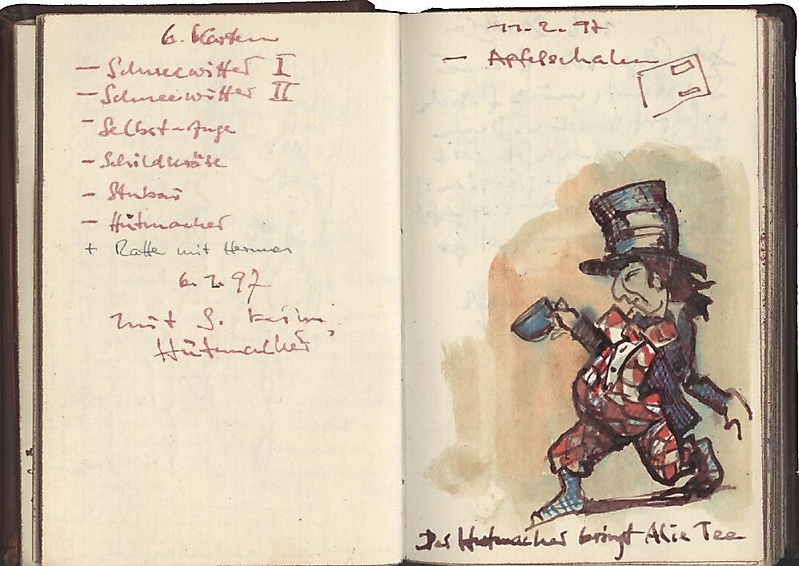 6. Karten
— Schneewitter I
— Schneewitter II
- Selbst-
- Schildkröte
-
- Hutmacher
+ Ratte mit
6.2.97
mit S.
Hutmacher
11.2.97
— Apfelschalen
Der Hutmacher bringt Alice Tee